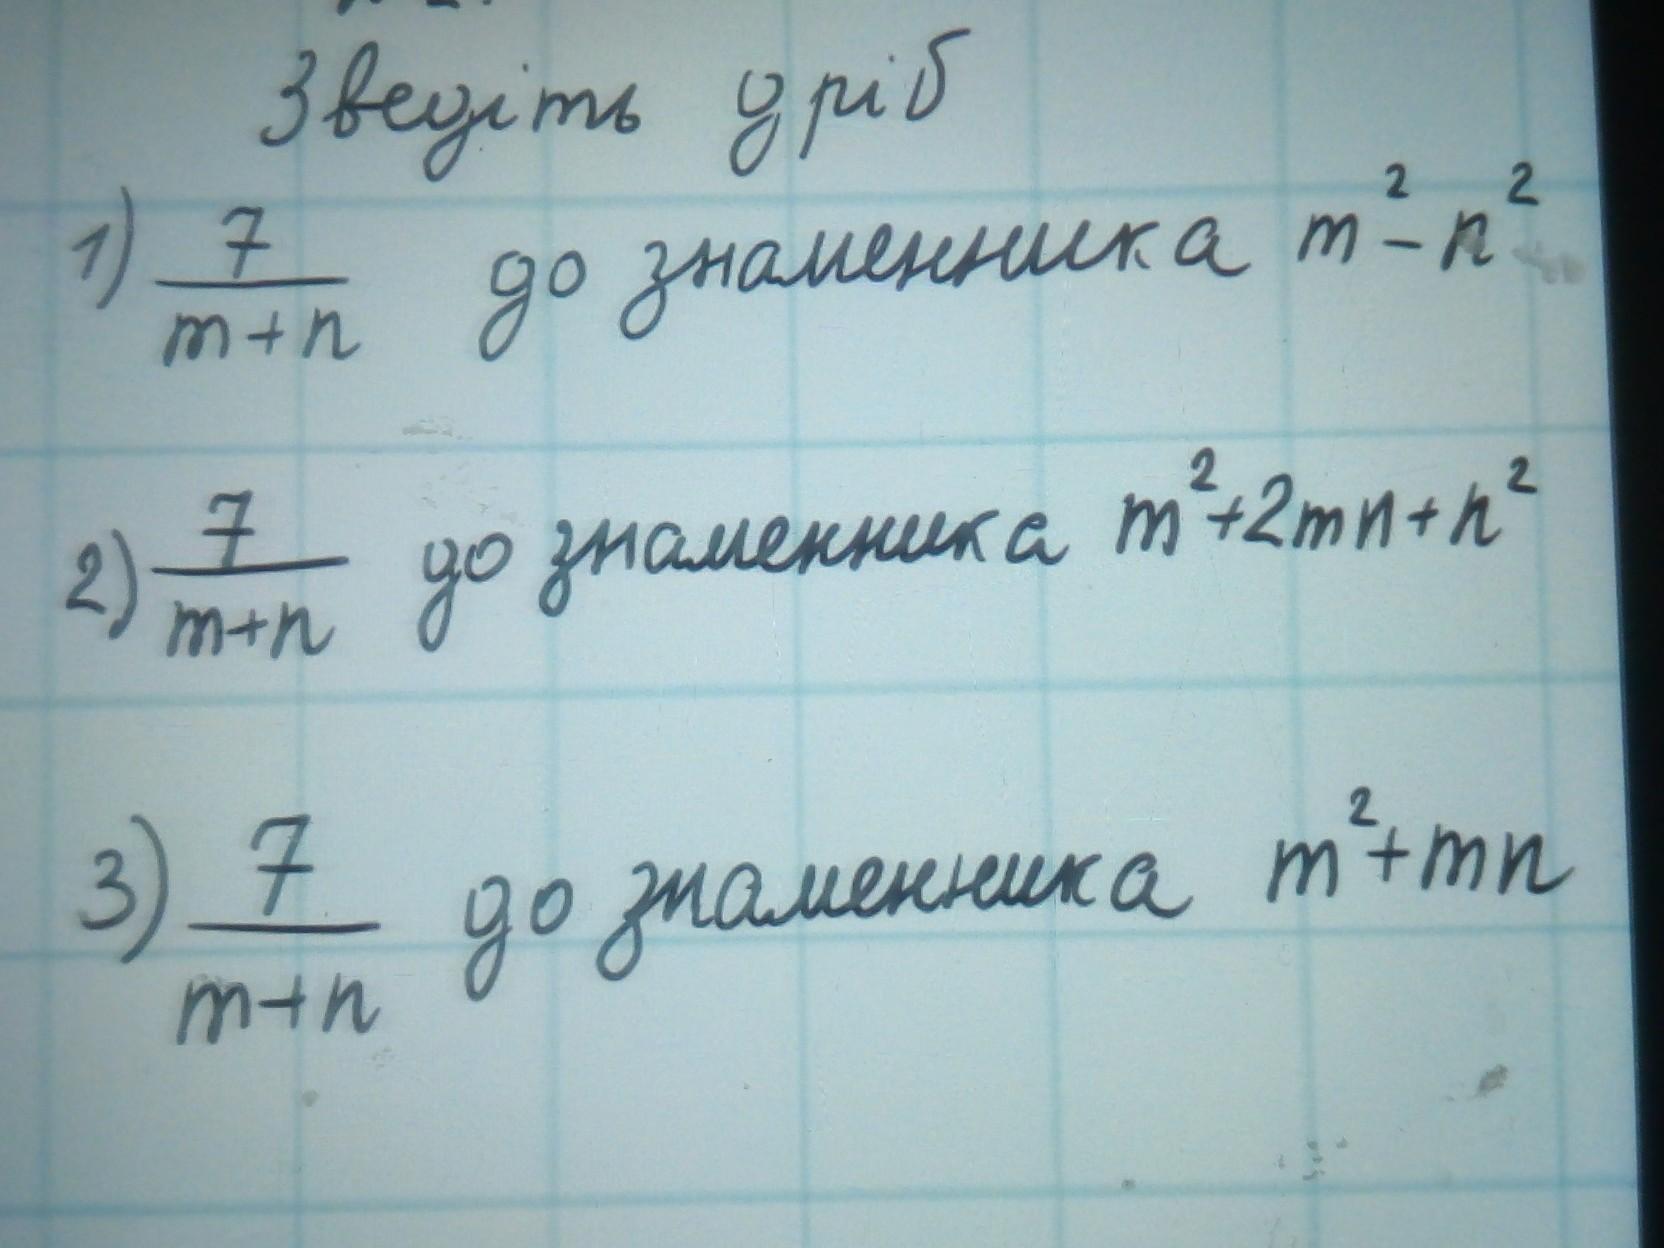 Зведіть дріб
1) 7/(m+n) до знаменника m²-n²
2) 7/(m+n) до знаменника m²+2mn+n²
3) 7/(m+n) до знаменника m²+mn